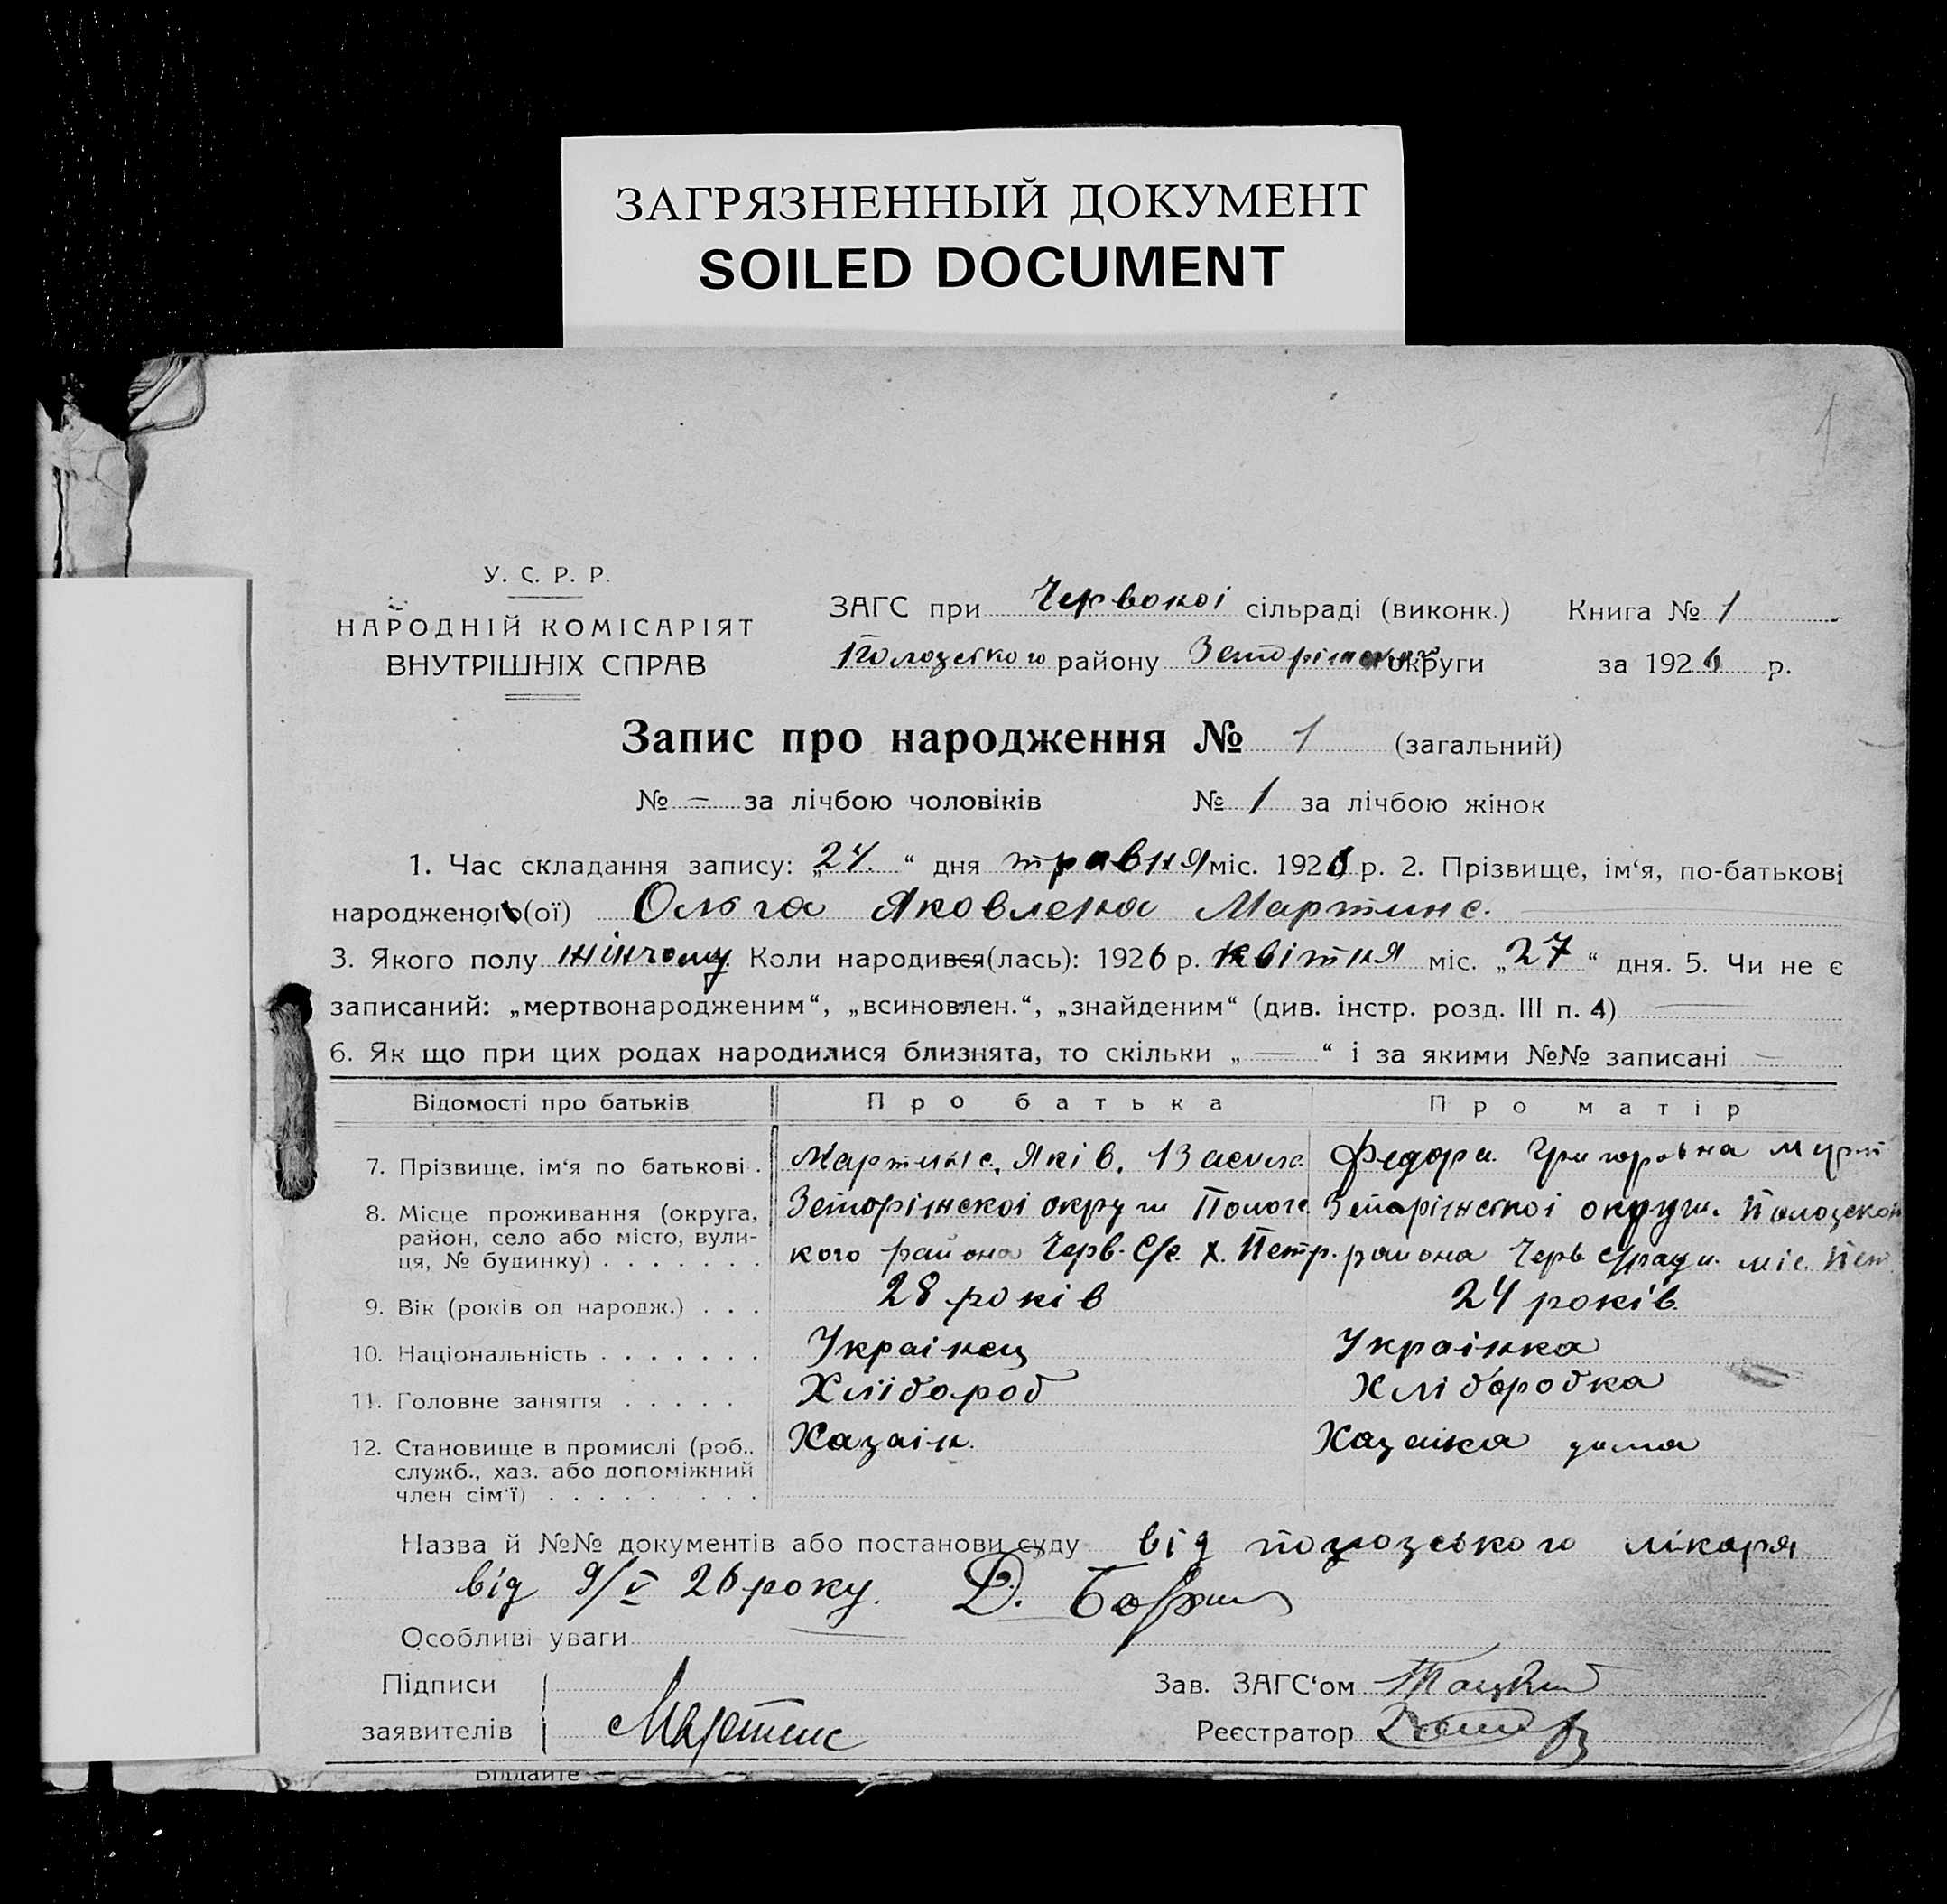 ЗАГРЯЗНЕННЫЙ ДОКУМЕНТ
SOILED DOCUMENT
1
У. С. Р. Р.
НАРОДНІЙ КОМІСАРІЯТ
ВНУТРІШНІХ СПРАВ
ЗАГС при Червокоі сільраді (виконк.) Книга № 1
Пологського району округи за 1926 р.
Запис про народження № 1 (загальний)
№ – за лічбою чоловіків № 1 за лічбою жінок
1. Час складання запису: „24.“ дня травня міс. 1926 р. 2. Прізвище, ім‘я, по-батькові
народженого(ої) Ольга Яковлена Мартинс.
3. Якого полу жіночому. Коли народився(лась): 1926 р. квітня міс. „27“ дня. 5. Чи не є
записаний: „мертвонародженим“, „всиновлен.“, „знайденим“ (див. інстр. розд. III п. 4)
6. Як що при цих родах народилися близнята, то скільки „ — “ і за якими №№ записані —
Відомості про батьків Про батька Про матір
7. Прізвище, ім‘я по батькові . Мартинс, Яків, Федора Григоровна Март
8. Місце проживання (округа, округи Пологс округи. Пологской
район, село або місто, вули- кого района Черв. С/с. х. Петр. района Черв с/ради. міс. Пет
ця, № будинку) . . . . . . .
9. Вік (років од народж.) . . . 28 років 24 років
10. Національність . . . . . . . Украінец Украінка
11. Головне заняття . . . . . Хлібороб Хліборобка
12. Становище в промислі (роб., Хазаін. Хазаіка дома
служб., хаз. або допоміжний
член сім‘ї) . . . . . . . . .
Назва й №№ документів або постанови суду від пологського лікаря
від 9/V 26 року. Д.
Особливі уваги
Підписи Зав. ЗАГС‘ом
заявителів Мартинс Реєстратор
Віддайте